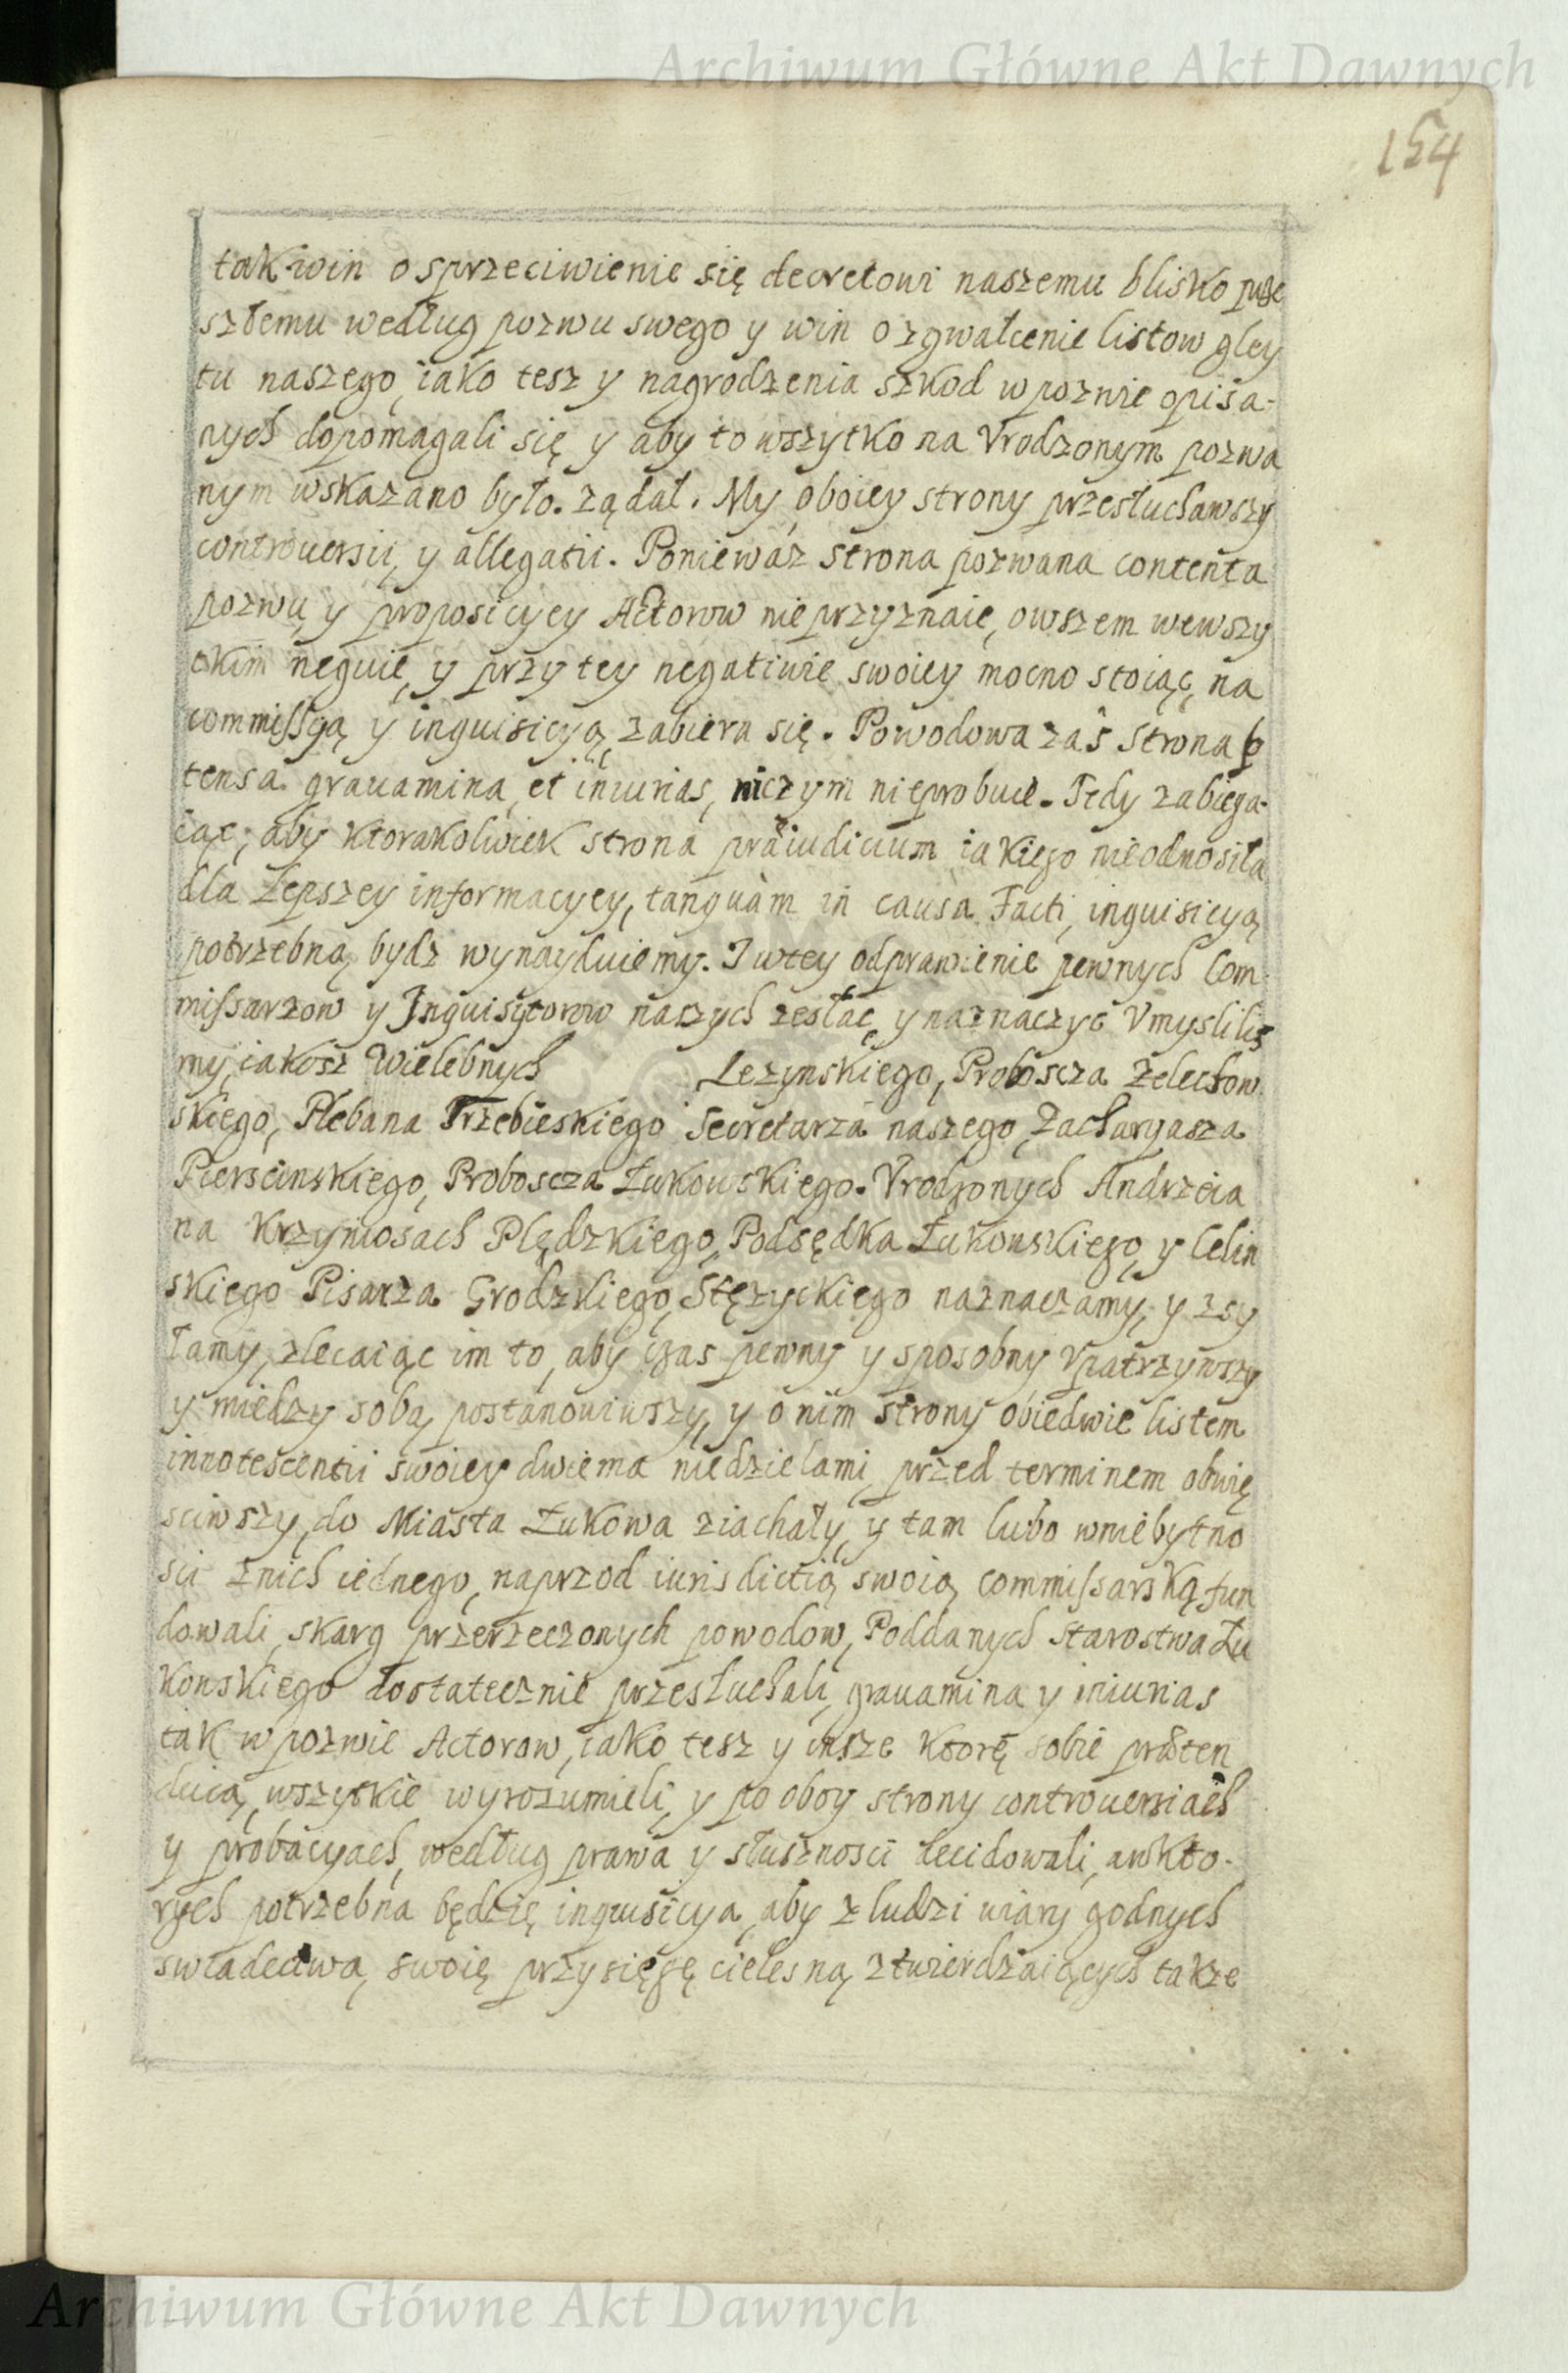 Archiwum Główne Akt Dawnych
154
tak win o sprzeciwienie się decretowi naszemu blisko prze
szłemu według pozwu swego y win o zgwałcenie listow gley
tu naszego, iako tesz y nagrodzenia szkod w pozwie opisa-
nych dopomagali się y aby to wszytko na Vrodzonym pozwa
nym wskazano było. ządał. My oboiey strony przesłuchawszy
controuersii, y allegatii. Poniewaz strona pozwana contenta
pozwu, y proposicyey Actorow nie przyznaie, owszem wewszy
tkim neguie, y przy tey negatiwie swoiey mocno stoiąc, na
commissyą y inquisicyą zabiera się. Powodowa zas strona p
tensa grauamina, et iniurias, niczym nieprobuie. Tedy zabiega-
iąc, aby ktorakolwiek strona præiudicium iakiego nieodnosiła
dla Lepszey informacyey, tanquàm in causa Facti, inquisicyą
potrzebną bydz wynayduiemy. I wtey odprawienie pewnych Com-
missarzow y Inquisytorow naszych zesłac, y naznaczyc Vmyslilis
my, iakosz Wielebnych Lezynskiego, Proboscza Zelechow
skiego, Plebana Trzebieskiego Secretarza naszego, Zacharyasza
Pierscinskiego, Proboscza Łukowskiego. Vrodzonych Andrzeia
na Krzymosach Plędzkiego, Podsędka Łukowskiego, y Celin
skiego Pisarza Grodzkiego, Stęzyckiego naznaczamy, y zsy
łamy, zlecaiąc im to, aby czas pewny y sposobny Vpatrzywszy
y miedzy sobą postanowiwszy, y o nim strony obiedwie listem
innotescentii swoiey dwiema niedzielami, przed terminem obwię
sciwszy, do Miasta Łukowa ziachały, y tam lubo wniebytno
sci znich iednego, naprzod iurisdictią swoią commissarską fun
dowali, skarg przerzeczonych powodow, Poddanych starostwa Łu
kowskiego dostatecznie przesłuchali, grauamina y iniurias
tak w pozwie Actorow, iako tesz y insze ktorę sobie præten
duią, wszytkie wyrozumieli, y po oboy strony controuersiach
y probacyach, według prawa y słusznosci decidowali, awkto-
rych potrzebna będzie inquisicya, aby z ludzi wiary godnych
swiadectwa, swoię przysięgę cielesną ztwierdzaiących takze
Archiwum Główne Akt Dawnych